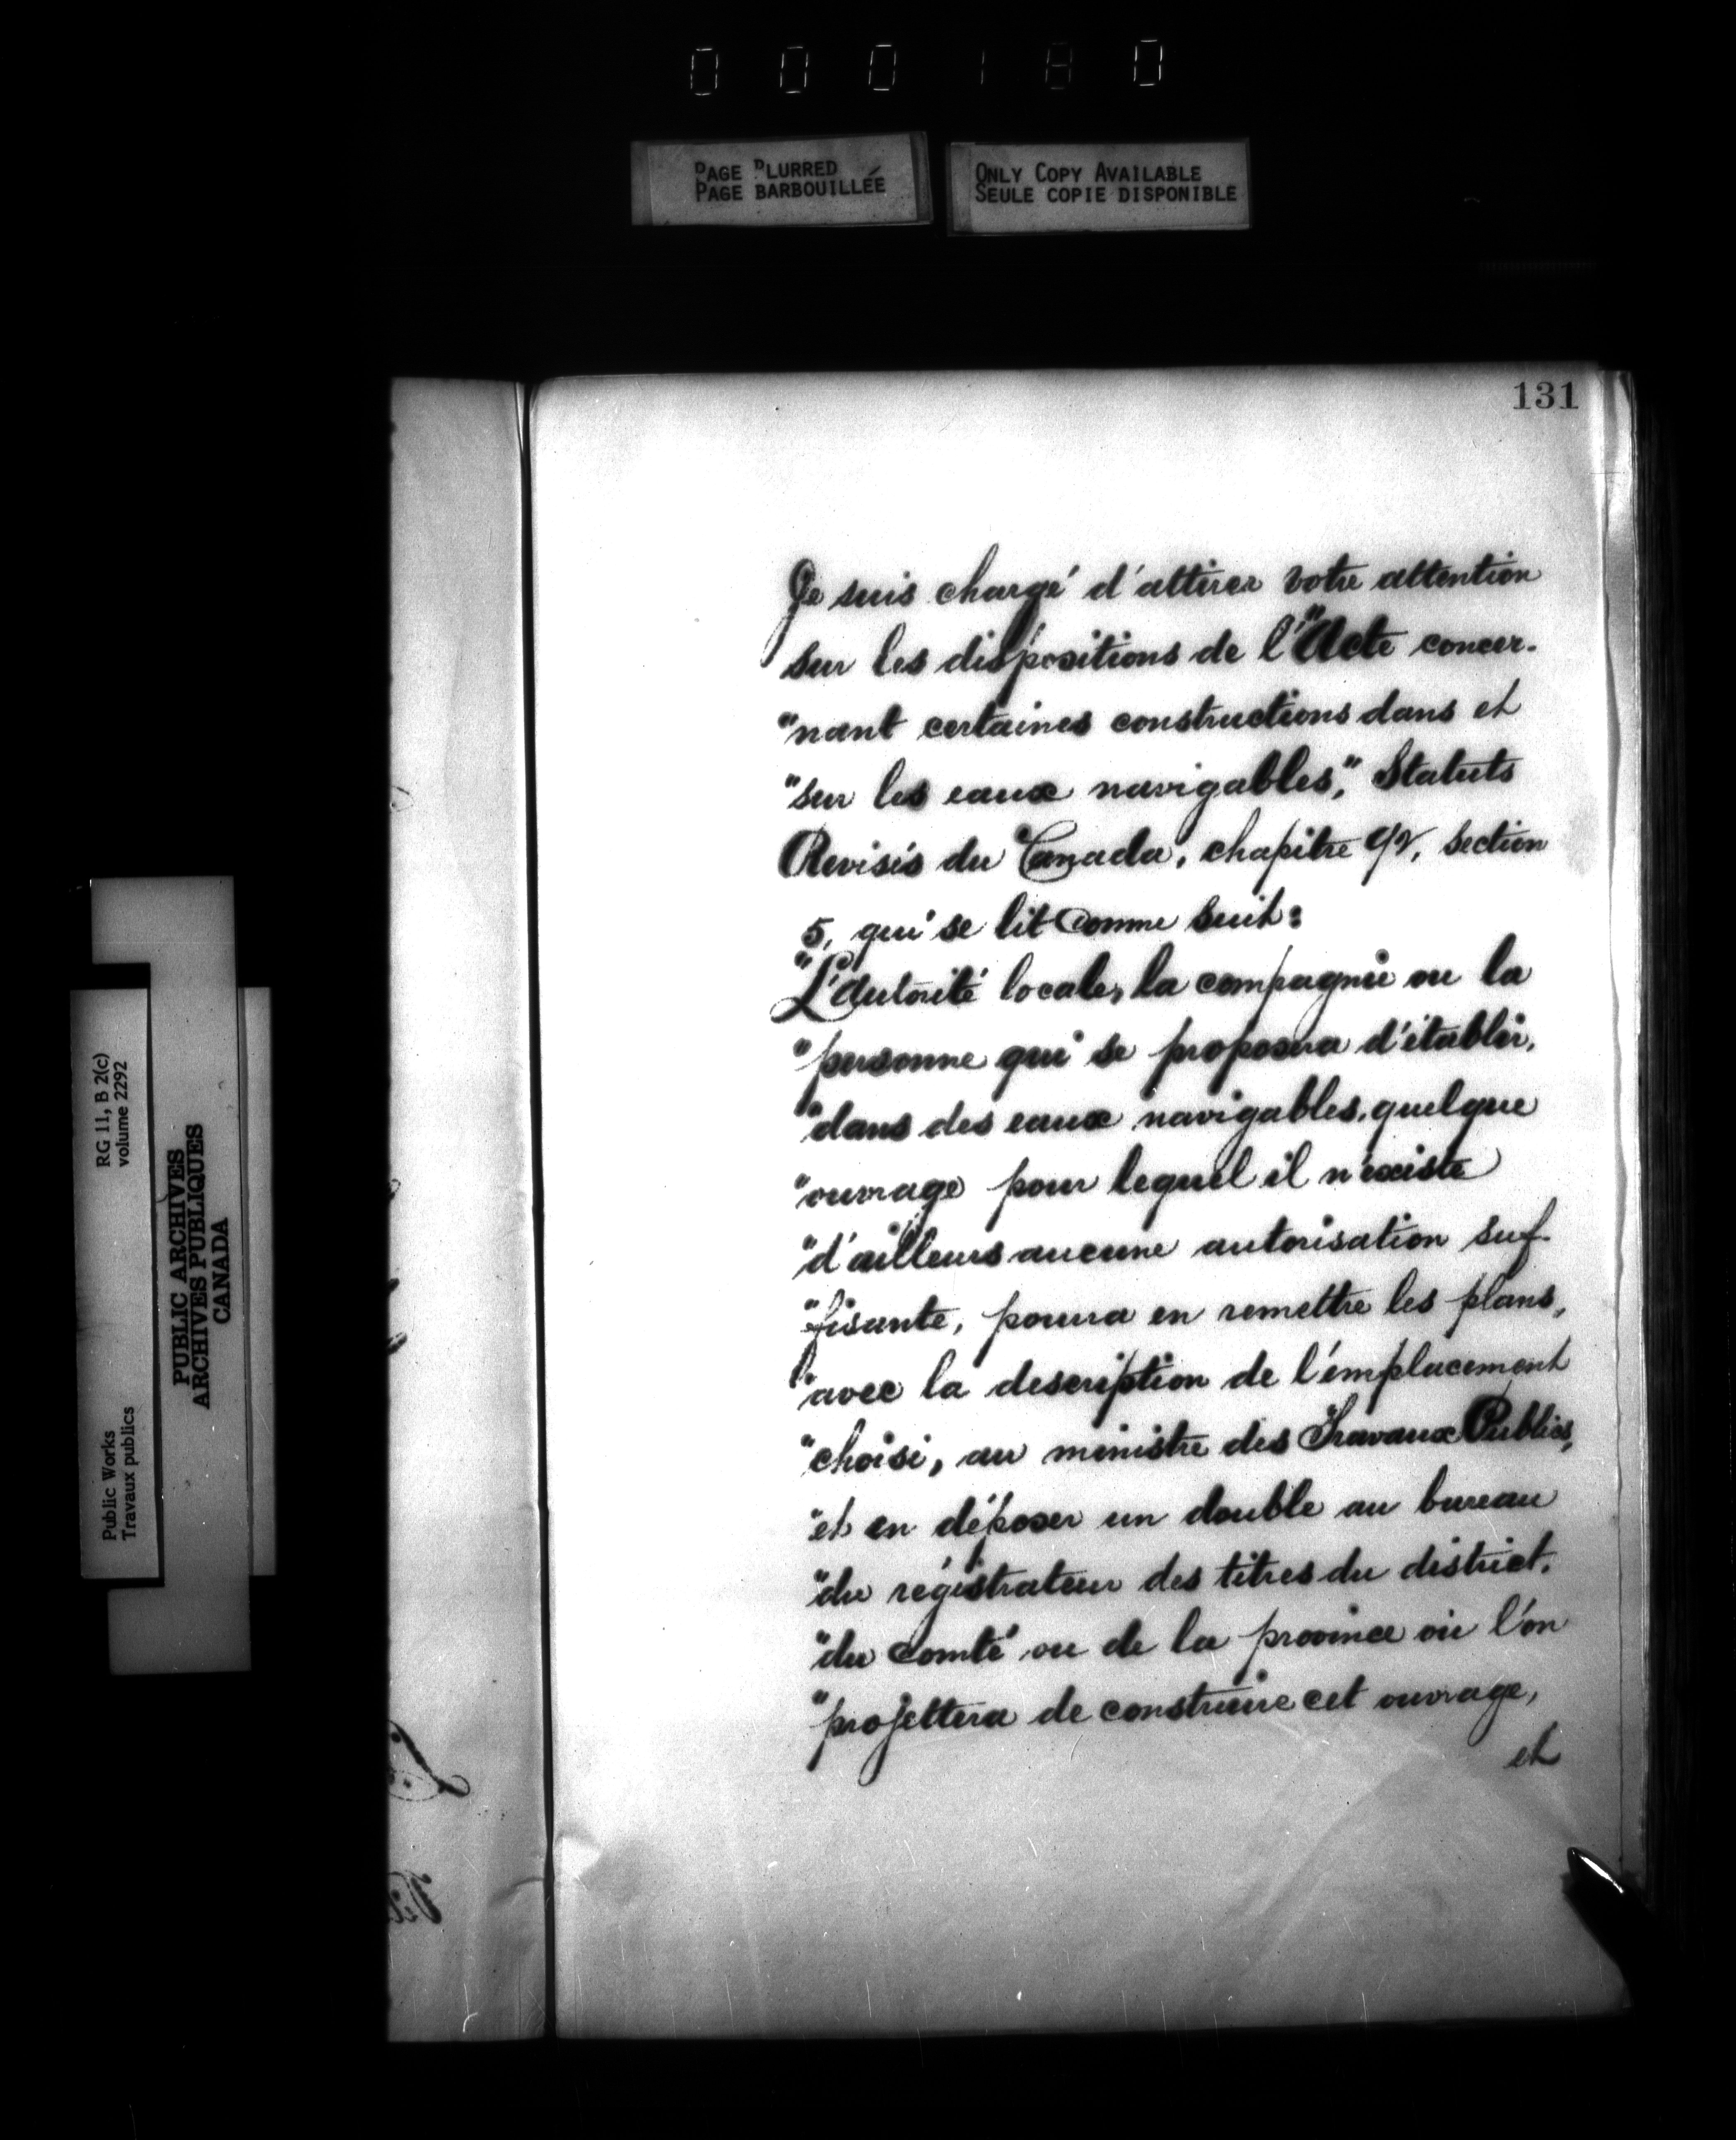 000180
PAGE BLURRED
PAGE BARBOUILLÉE
ONLY COPY AVAILABLE
SEULE COPIE DISPONIBLE
131
Je suis chargé d'attirer votre attention
sur les dispositions de l'"Acte concer-
"nant certaines constructions dans et
"sur les eaux navigables," Statuts
Revisés du Canada, chapitre 92, section
5, qui se lit comme suit:
"L'autorité locale, la compagnie ou la
"personne qui se proposera d'établir,
"dans des eaux navigables, quelque
"ouvrage pour lequel il n'existe
"d'ailleurs aucune autorisation suf-
"fisante, pourra en remettre les plans,
"avec la description de l'emplacement
"choisi, au ministre des Travaux Publics,
"et en déposer un double au bureau
"du régistrateur des titres du district,
"du comté ou de la province où l'on
"projettera de construire cet ouvrage,
et
RG 11, B 2(c)
volume 2292
Public Works
Travaux publics
PUBLIC ARCHIVES
ARCHIVES PUBLIQUES
CANADA